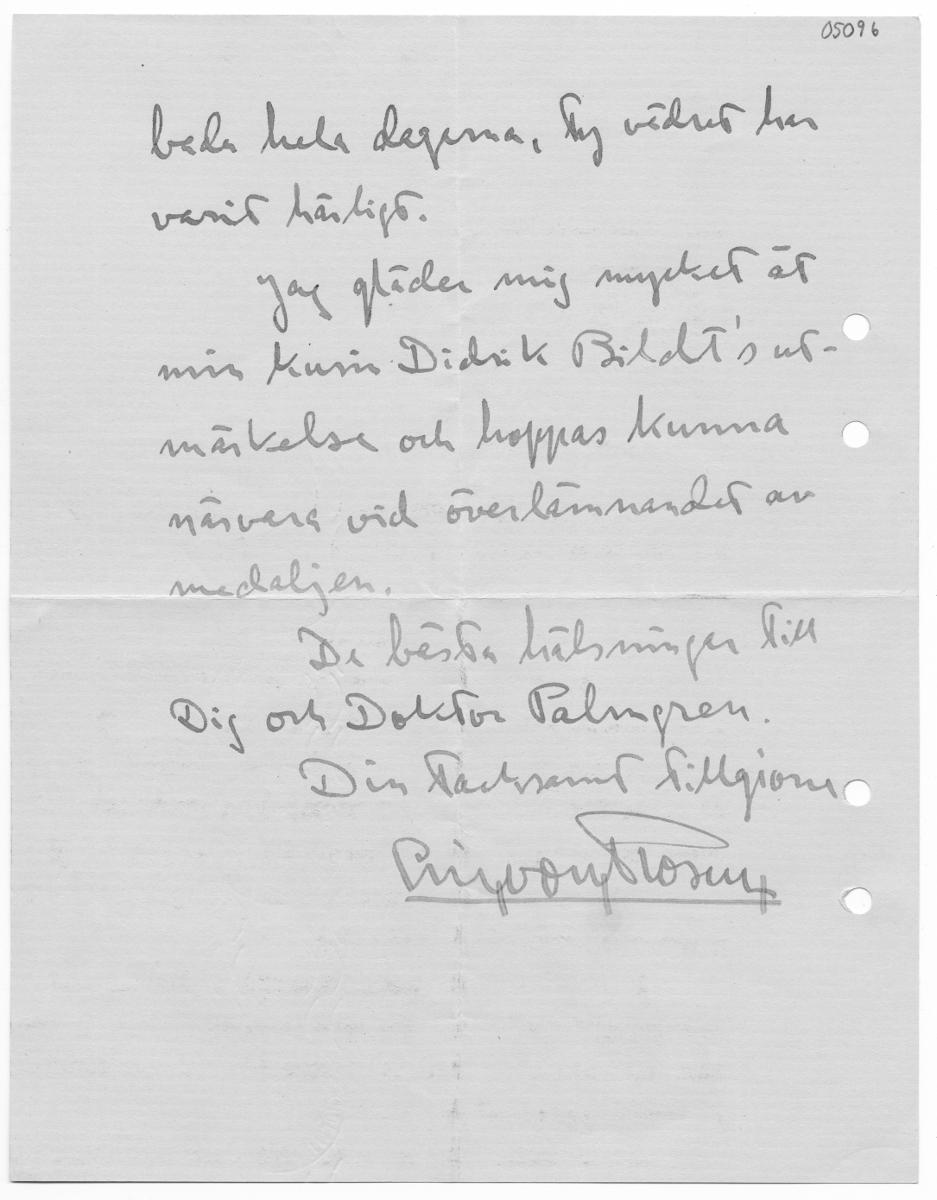 05096
bada hela dagarna, ty vädret har
varit härligt.
Jag gläder mig mycket åt
min kusin Didrik Bildt's ut-
märkelse och hoppas kunna
närvara vid överlämnandet av
medaljen.
De bästa hälsningar till
Dig och Doktor Palmgren.
Din tacksamt tillgivne
von Rosen